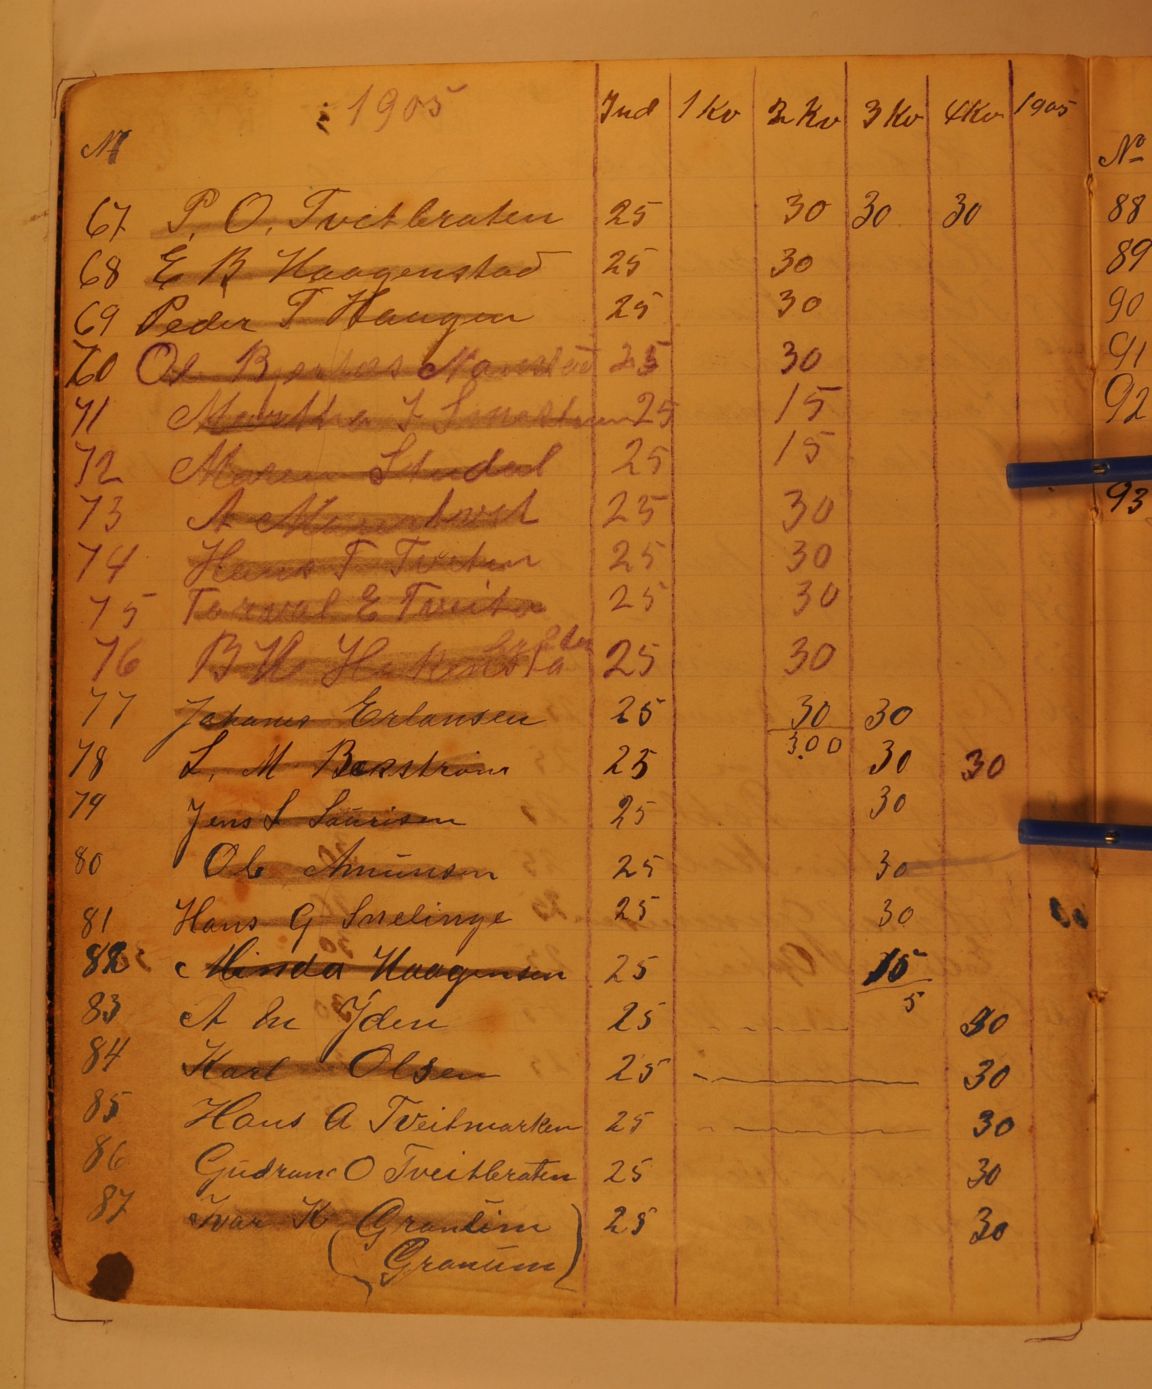 1905 Ind 1 Kv 2 Kv 3 Kv 4 Kv 1905
N
No
67 P. O. Tveitbraten 25 30 30 30 88
68 E B Haagenstad 25 30 89
69 Peder T Haugen 25 30 90
70 Ole 25 30 91
71 Marthe 25 15 92
72 Maren 25 15
73 A 25 30 93
74 Hans T Tveten 25 30
75 Torval E Tveita 25 30
76 B 25 30
77 Johannes Erlansen 25 30 30
3.00
78 L. M Bekstrøm 25 30 30
79 Jens L Laurisen 25 30
80 Ole Amunsen 25 30
81 Hans G Snelinge 25 30
82 Minda Haagensen 25 15
5
83 A M Yden 25 30
84 Karl Olsen 25 30
85 Hans A Tveitmarken 25 30
86 Gudrun O Tveitbraten 25 30
87 Ivar K Granlim 25 30
(Granum)